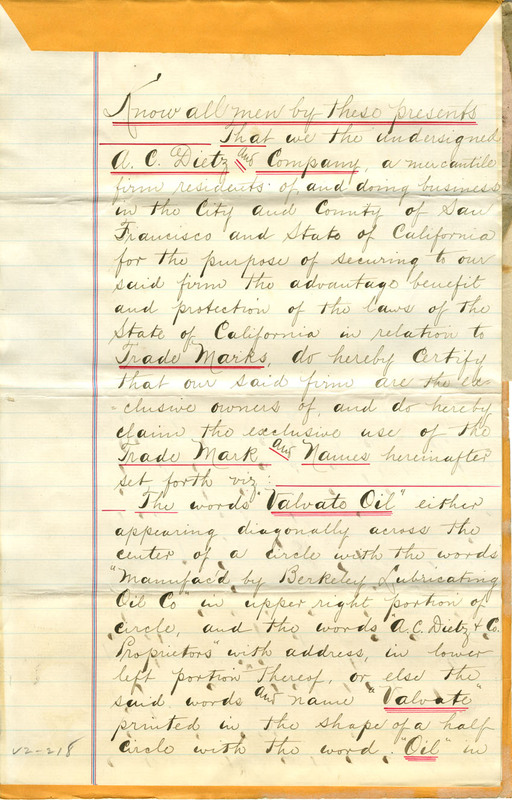 Know all men by these presents
That we the undersigned
A. C. Dietz and Company, a mercantile
firm residents of and doing business
in the City and County of San
Francisco and State of California
for the purpose of securing to our
said firm the advantage benefit
and protection of the laws of the
State of California in relation to
Trade Marks, do hereby Certify
that our said firm are the ex-
-clusive owners of, and do hereby
claim the exclusive use of the
Trade Mark and Names hereinafter
set forth viz:
The words "Valvate Oil" either
appearing diagonally across the
center of a circle with the words
"Manufac'd by Berkeley Lubricating
Oil Co" in upper right portion of
circle, and the words "A. C. Dietz & Co.
Proprietors" with address, in lower
left portion thereof, or else the
said words and name "Valvate"
printed in the shape of a half
circle with the word "Oil" in
V2-218